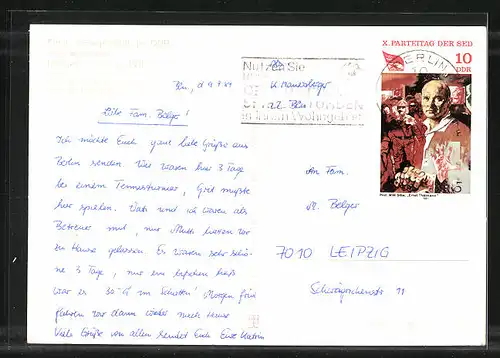 X. PARTEITAG DER SED
10
DDR
BERLIN
Nutzen Sie
in Ihrem Wohngebiet
Prof. Willi Sitte, „Ernst Thälmann“
Liebe Fam. Belger!
Ich möchte Euch ganz liebe Grüße aus
Berlin senden. Wir waren hier 3 Tage
bei einem Tennisturnier, Grit mußte
hier spielen. Vati und ich waren als
Betreuer mit, nur Mutti haben wir
zu Hause gelassen. Es waren sehr schö-
ne 3 Tage, nur ein bißchen heiß
war es 30°C im Schatten! Morgen früh
fahren wir dann wieder nach Hause
Viele Grüße von allen sendet Euch Eure Katrin
An Fam.
M. Belger
7010 LEIPZIG
11